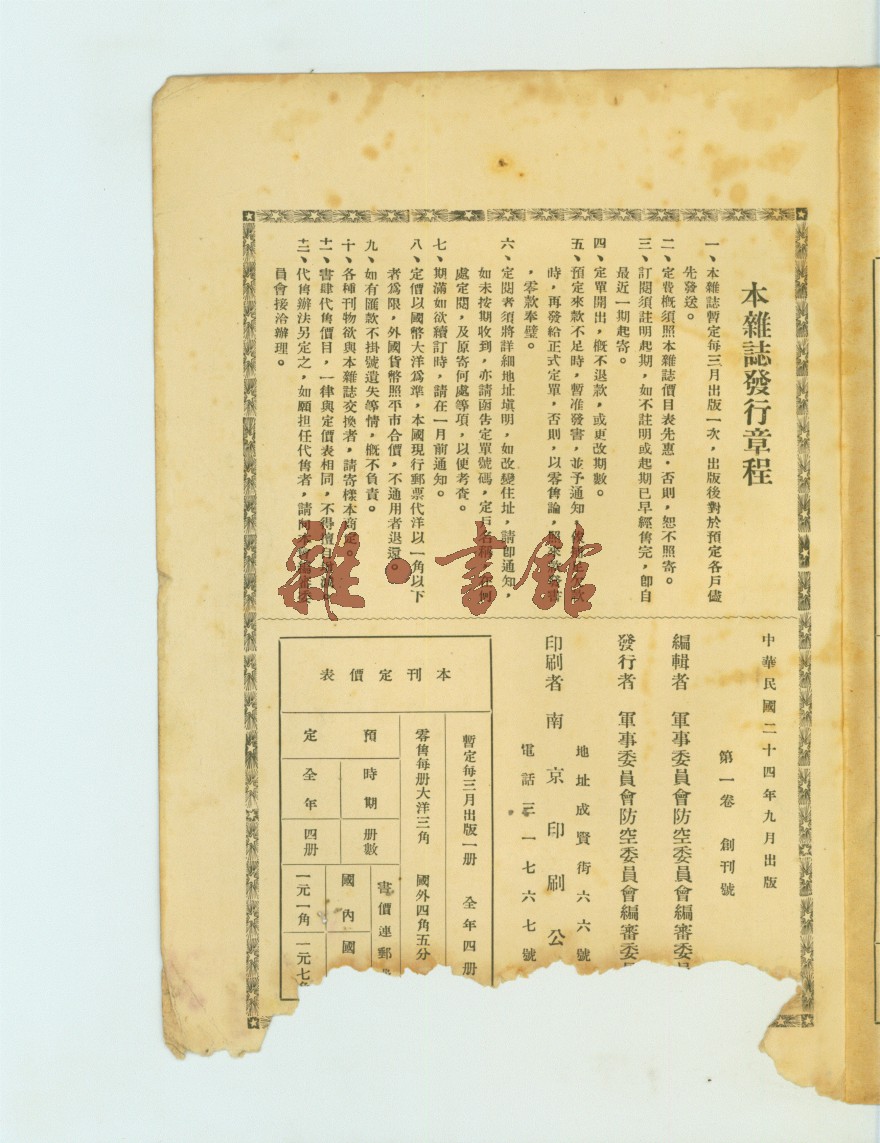 本雜誌發行章程
一、本雜誌暫定每三月出版一次，出版後對於預定各戶儘
先發送。
二、定費概須照本雜誌價目表先惠，否則，恕不照寄。
三、訂閱須註明起期，如不註明或起期已早經售完，卽自
最近一期起寄。
四、定單開出，概不退款，或更改期數。
五、預定來款不足時，暫准發書，並予通知，補足欠款
時，再發給正式定單，否則，以零售論，照來款發書
，零款奉璧。
六、定閱者須將詳細地址塡明，如改變住址，請卽通知，
如未按期收到，亦請函告定單號碼，定戶名稱，在何
處定閱，及原寄何處等項，以便考查。
七、期滿如欲續訂時，請在一月前通知。
八、定價以國幣大洋爲準，本國現行郵票代洋以一角以下
者爲限，外國貨幣照平市合價，不通用者退還。
九、如有匯款不掛號遺失等情，概不負責。
十、各種刊物欲與本雜誌交換者，請寄樣本商定。
十一、書肆代售價目，一律與定價表相同，不得擅自增減。
十二、代售辦法另定之，如願担任代售者，請向本會編審委
員會接洽辦理。
中華民國二十四年九月出版
第一卷 創刊號
編輯者 軍事委員會防空委員會編審委員
發行者 軍事委員會防空委員會編審委員
地址成賢街六六號
印刷者 南京印刷公
電話三一七六七號
本刊定價表
暫定每三月出版一册 全年四册
零售每册大洋三角 國外四角五分
預定
時期 册數 書價連郵
國內 國
全年 四册 一元一角 一元七角
雜·書館